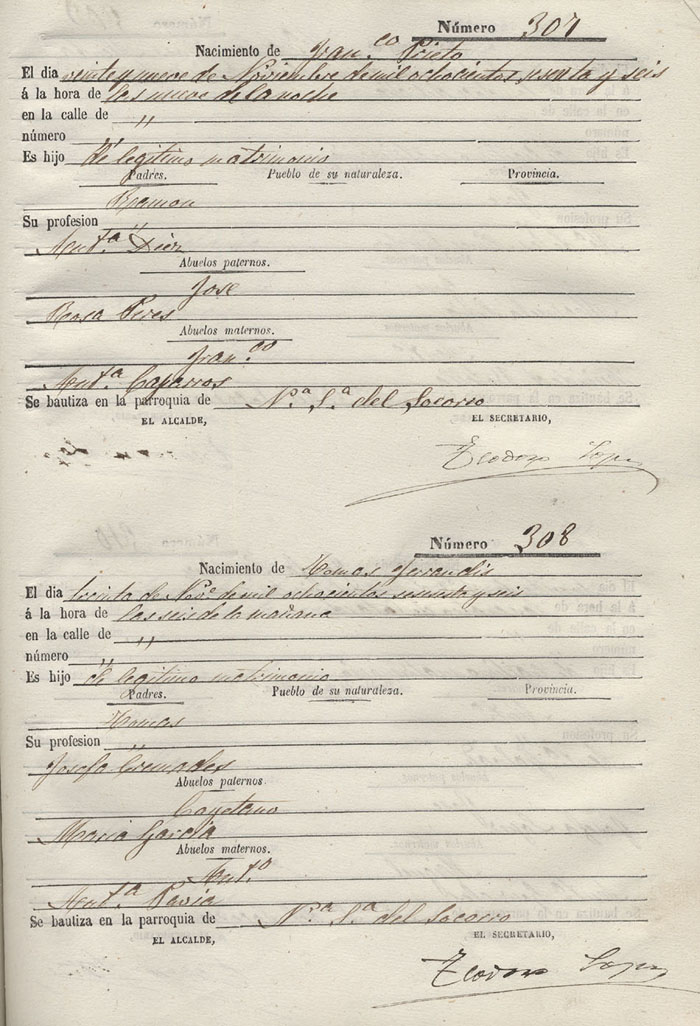 Número 307
Nacimiento de Fran.co Prieto
El dia veinte y nueve de Noviembre de mil ochocientos sesenta y seis
á la hora de las nueve de la noche
en la calle de "
número "
Es hijo de legitimo matrimonio
Padres. Pueblo de su naturaleza. Provincia.
Ramon
Su profesion "
Ant.a Diez
Abuelos paternos.
Jose
Rosa Pires
Abuelos maternos.
Fran.co
Ant.a Caparros
Se bautiza en la parroquia de N.a S.a del Socorro
EL ALCALDE, EL SECRETARIO,
Teodoro Lopez
Número 308
Nacimiento de Tomas Ferandis
El dia treinta de Nov.e de mil ochocientos sesenta y seis
á la hora de las seis de la mañana
en la calle de "
número "
Es hijo de legitimo matrimonio
Padres. Pueblo de su naturaleza. Provincia.
Tomas
Su profesion "
Josefa Gremades
Abuelos paternos.
Cayetano
Maria Garcia
Abuelos maternos.
Ant.o
Ant.a Pavia
Se bautiza en la parroquia de N.a S.a del Socorro
EL ALCALDE, EL SECRETARIO,
Teodoro Lopez